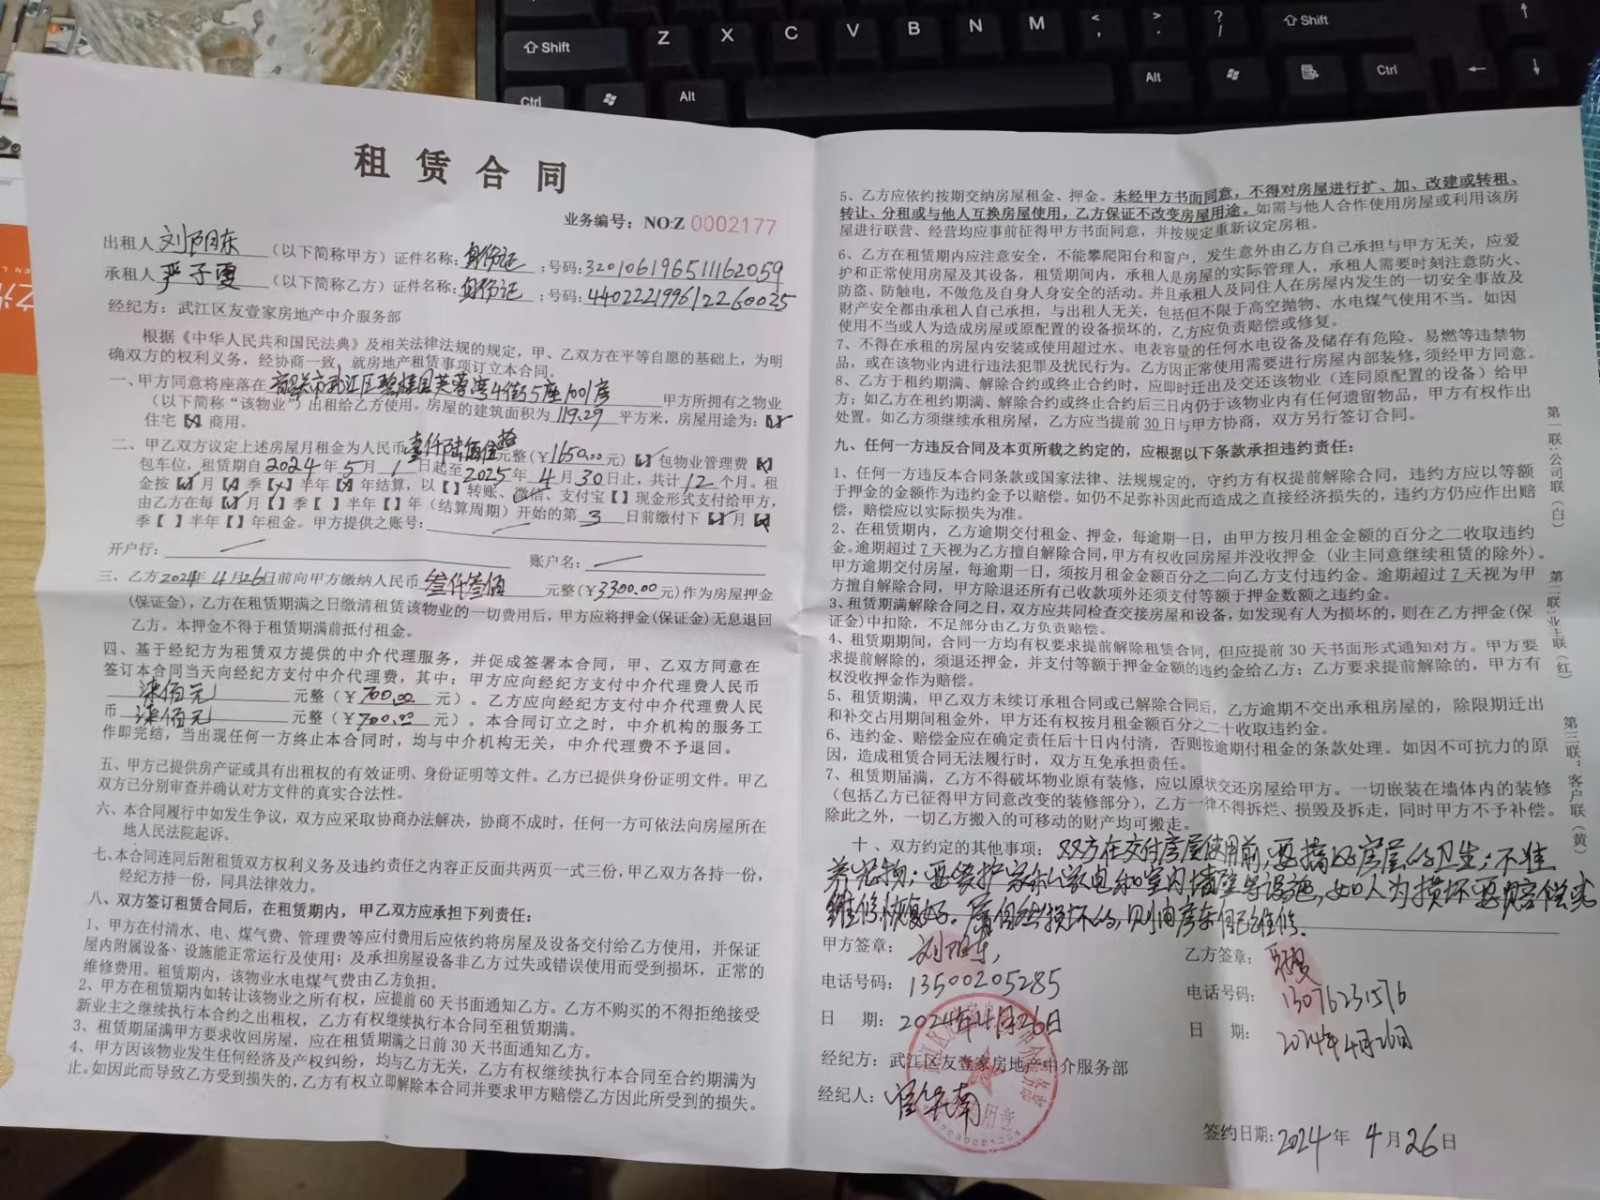 租赁合同
业务编号：NO:Z 0002177
出租人刘阳东（以下简称甲方）证件名称：身份证：号码：320106196511162059
承租人严子雯（以下简称乙方）证件名称：身份证：号码：440222199612260025
经纪方：武江区友壹家房地产中介服务部
根据《中华人民共和国民法典》及相关法律法规的规定，甲、乙双方在平等自愿的基础上，为明
确双方的权利义务，经协商一致，就房地产租赁事项订立本合同。
一、甲方同意将座落在韶关市武江区碧桂园芙蓉湾4街5座1001房甲方所拥有之物业
（以下简称“该物业”）出租给乙方使用。房屋的建筑面积为119.29平方米，房屋用途为：【✓】
住宅【×】商用。
二、甲乙双方议定上述房屋月租金为人民币壹仟陆佰伍拾元整（￥1650.00元）【✓】包物业管理费【×】
包车位，租赁期自2024年5月1日起至2025年4月30日止，共计12个月。租
金按【✓】月【×】季【×】半年【×】年结算，以【】转账、微信、支付宝【】现金形式支付给甲方，
由乙方在每【✓】月【】季【】半年【】年（结算周期）开始的第3日前缴付下【✓】月【×】
季【】半年【】年租金。甲方提供之账号：
开户行： 账户名：
三、乙方2024年4月26日前向甲方缴纳人民币叁仟叁佰元整（￥3300.00元）作为房屋押金
（保证金），乙方在租赁期满之日缴清租赁该物业的一切费用后，甲方应将押金（保证金）无息退回
乙方。本押金不得于租赁期满前抵付租金。
四、基于经纪方为租赁双方提供的中介代理服务，并促成签署本合同，甲、乙双方同意在
签订本合同当天向经纪方支付中介代理费，其中：甲方应向经纪方支付中介代理费人民币
柒佰元元整（￥700.00元）。乙方应向经纪方支付中介代理费人民
币柒佰元元整（￥700.00元）。本合同订立之时，中介机构的服务工
作即完结，当出现任何一方终止本合同时，均与中介机构无关，中介代理费不予退回。
五、甲方已提供房产证或具有出租权的有效证明、身份证明等文件。乙方已提供身份证明文件。甲乙
双方已分别审查并确认对方文件的真实合法性。
六、本合同履行中如发生争议，双方应采取协商办法解决，协商不成时，任何一方可依法向房屋所在
地人民法院起诉。
七、本合同连同后附租赁双方权利义务及违约责任之内容正反面共两页一式三份，甲乙双方各持一份，
经纪方持一份，同具法律效力。
八、双方签订租赁合同后，在租赁期内，甲乙双方应承担下列责任：
1、甲方在付清水、电、煤气费、管理费等应付费用后应依约将房屋及设备交付给乙方使用，并保证
屋内附属设备、设施能正常运行及使用；及承担房屋设备非乙方过失或错误使用而受到损坏，正常的
维修费用。租赁期内，该物业水电煤气费由乙方负担。
2、甲方在租赁期内如转让该物业之所有权，应提前60天书面通知乙方。乙方不购买的不得拒绝接受
新业主之继续执行本合约之出租权，乙方有权继续执行本合同至租赁期满。
3、租赁期届满甲方要求收回房屋，应在租赁期满之日前30天书面通知乙方。
4、甲方因该物业发生任何经济及产权纠纷，均与乙方无关，乙方有权继续执行本合同至合约期满为
止。如因此而导致乙方受到损失的，乙方有权立即解除本合同并要求甲方赔偿乙方因此所受到的损失。
5、乙方应依约按期交纳房屋租金、押金。未经甲方书面同意，不得对房屋进行扩、加、改建或转租、
转让、分租或与他人互换房屋使用，乙方保证不改变房屋用途。如需与他人合作使用房屋或利用该房
屋进行联营、经营均应事前征得甲方书面同意，并按规定重新议定房租。
6、乙方在租赁期内应注意安全，不能攀爬阳台和窗户，发生意外由乙方自己承担与甲方无关，应爱
护和正常使用房屋及其设备，租赁期间内，承租人是房屋的实际管理人，承租人需要时刻注意防火、
防盗、防触电，不做危及自身人身安全的活动。并且承租人及同住人在房屋内发生的一切安全事故及
财产安全都由承租人自己承担，与出租人无关，包括但不限于高空抛物、水电煤气使用不当。如因
使用不当或人为造成房屋或原配置的设备损坏的，乙方应负责赔偿或修复。
7、不得在承租的房屋内安装或使用超过水、电表容量的任何水电设备及储存有危险、易燃等违禁物
品，或在该物业内进行违法犯罪及扰民行为。乙方因正常使用需要进行房屋内部装修，须经甲方同意。
8、乙方于租约期满、解除合约或终止合约时，应即时迁出及交还该物业（连同原配置的设备）给甲
方；如乙方在租约期满、解除合约或终止合约后三日内仍于该物业内有任何遗留物品，甲方有权作出
处置。如乙方须继续承租房屋，乙方应当提前30日与甲方协商，双方另行签订合同。
九、任何一方违反合同及本页所载之约定的，应根据以下条款承担违约责任：
1、任何一方违反本合同条款或国家法律、法规规定的，守约方有权提前解除合同，违约方应以等额
于押金的金额作为违约金予以赔偿。如仍不足弥补因此而造成之直接经济损失的，违约方仍应作出赔
偿，赔偿应以实际损失为准。
2、在租赁期内，乙方逾期交付租金、押金，每逾期一日，由甲方按月租金金额的百分之二收取违约
金。逾期超过7天视为乙方擅自解除合同，甲方有权收回房屋并没收押金（业主同意继续租赁的除外）。
甲方逾期交付房屋，每逾期一日，须按月租金金额百分之二向乙方支付违约金。逾期超过7天视为甲
方擅自解除合同，甲方除退还所有已收款项外还须支付等额于押金数额之违约金。
3、租赁期满解除合同之日，双方应共同检查交接房屋和设备，如发现有人为损坏的，则在乙方押金（保
证金）中扣除，不足部分由乙方负责赔偿。
4、租赁期期间，合同一方均有权要求提前解除租赁合同，但应提前30天书面形式通知对方。甲方要
求提前解除的，须退还押金，并支付等额于押金金额的违约金给乙方；乙方要求提前解除的，甲方有
权没收押金作为赔偿。
5、租赁期满，甲乙双方未续订承租合同或已解除合同后，乙方逾期不交出承租房屋的，除限期迁出
和补交占用期间租金外，甲方还有权按月租金额百分之二十收取违约金。
6、违约金、赔偿金应在确定责任后十日内付清，否则按逾期付租金的条款处理。如因不可抗力的原
因，造成租赁合同无法履行时，双方互免承担责任。
7、租赁期届满，乙方不得破坏物业原有装修，应以原状交还房屋给甲方。一切嵌装在墙体内的装修
（包括乙方已征得甲方同意改变的装修部分），乙方一律不得拆烂、损毁及拆走，同时甲方不予补偿。
除此之外，一切乙方搬入的可移动的财产均可搬走。
十、双方约定的其他事项：双方在交付房屋使用前，要搞好房屋的卫生；不准
养宠物；要爱护家私家电和室内墙壁等设施，如人为损坏要赔偿或
维修恢复好。属自然损坏的，则由房东自己维修。
甲方签章：刘阳东
电话号码：13500205285
日 期：2024年4月26日
经纪方：武江区友壹家房地产中介服务部
经纪人：
乙方签章：严子雯
电话号码：13076231516
日 期：2024年4月26日
签约日期：2024年4月26日
第一联：公司联（白）
第二联：业主联（红）
第三联：客户联（黄）
Shift
Z
X
C
V
B
N
M
Shift
Ctrl
Alt
Alt
Ctrl